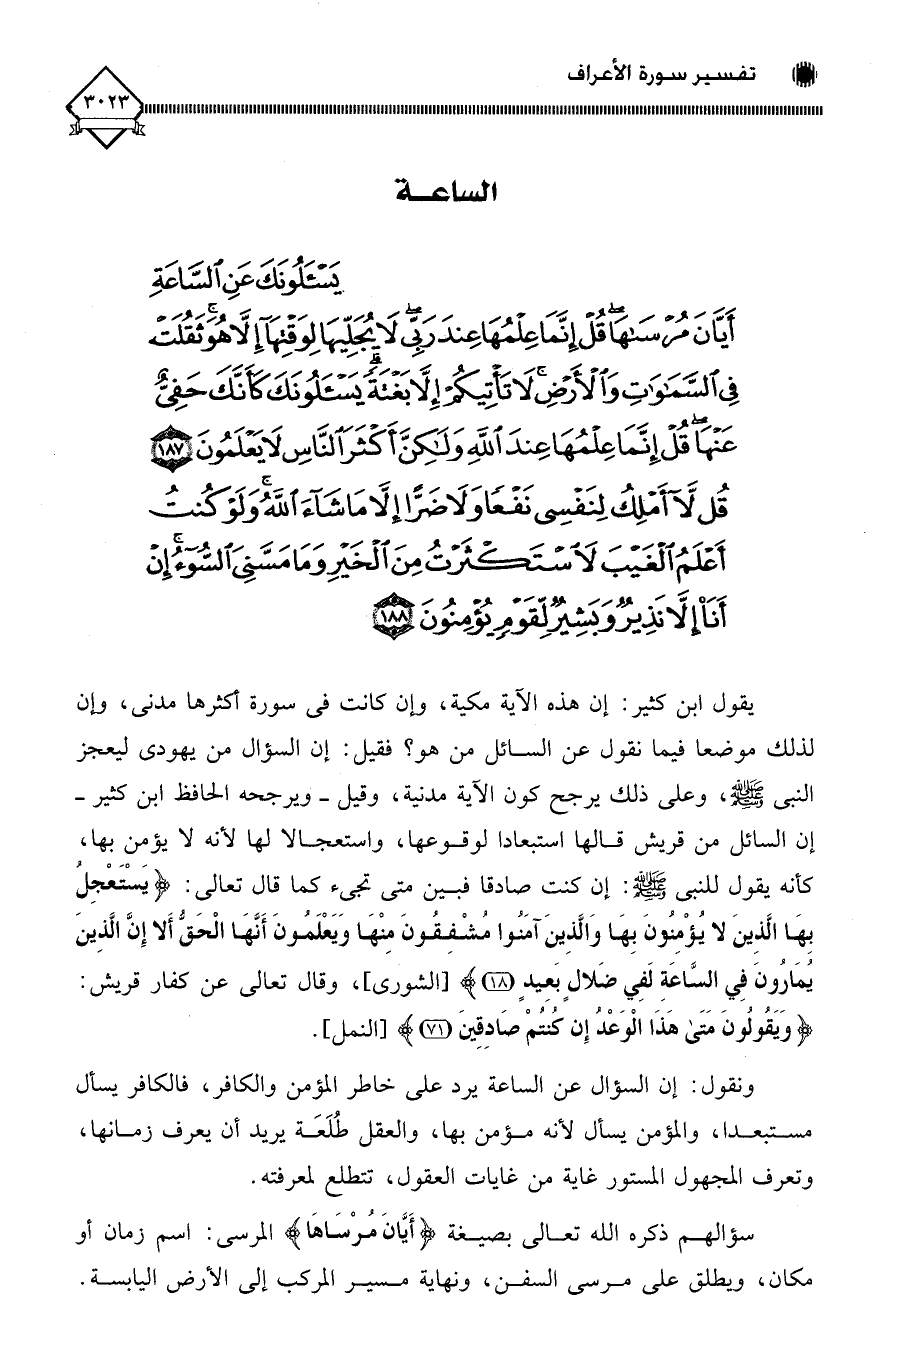 تفسير سورة الأعراف
٣٠٢٣
الساعـة
يَسْـَٔلُونَكَ عَنِ ٱلسَّاعَةِ
أَيَّانَ مُرْسَىٰهَا ۖ قُلْ إِنَّمَا عِلْمُهَا عِندَ رَبِّى ۖ لَا يُجَلِّيهَا لِوَقْتِهَآ إِلَّا هُوَ ۚ ثَقُلَتْ
فِى ٱلسَّمَـٰوَٰتِ وَٱلْأَرْضِ ۚ لَا تَأْتِيكُمْ إِلَّا بَغْتَةً ۗ يَسْـَٔلُونَكَ كَأَنَّكَ حَفِىٌّ
عَنْهَا ۖ قُلْ إِنَّمَا عِلْمُهَا عِندَ ٱللَّهِ وَلَـٰكِنَّ أَكْثَرَ ٱلنَّاسِ لَا يَعْلَمُونَ ١٨٧
قُل لَّآ أَمْلِكُ لِنَفْسِى نَفْعًا وَلَا ضَرًّا إِلَّا مَا شَآءَ ٱللَّهُ ۚ وَلَوْ كُنتُ
أَعْلَمُ ٱلْغَيْبَ لَٱسْتَكْثَرْتُ مِنَ ٱلْخَيْرِ وَمَا مَسَّنِىَ ٱلسُّوٓءُ ۚ إِنْ
أَنَا۠ إِلَّا نَذِيرٌ وَبَشِيرٌ لِّقَوْمٍ يُؤْمِنُونَ ١٨٨
يقول ابن كثير: إن هذه الآية مكية، وإن كانت فى سورة أكثرها مدنى، وإن
لذلك موضعا فيما نقول عن السـائل من هو؟ فقيل: إن السؤال من يهودى ليعجز
النبى ﷺ، وعلى ذلك يرجح كون الآية مدنية، وقيل ـ ويرجحه الحافظ ابن كثير ـ
إن السائل من قريش قـالها استبعادا لوقـوعها، واستعجـالا لها لأنه لا يؤمن بها،
كأنه يقول للنبى ﷺ: إن كنت صادقا فبين متى تجىء كما قال تعالى: ﴿ يَسْتَعْجِلُ
بِهَا الَّذِينَ لا يُؤْمِنُونَ بِهَا وَالَّذِينَ آمَنُوا مُشْفِقُونَ مِنْهَا وَيَعْلَمُونَ أَنَّهَا الْحَقُّ أَلا إِنَّ الَّذِينَ
يُمَارُونَ فِي السَّاعَةِ لَفِي ضَلالٍ بَعِيدٍ (١٨) ﴾ [الشورى]، وقال تعالى عن كفار قريش:
﴿ وَيَقُولُونَ مَتَىٰ هَذَا الْوَعْدُ إِن كُنتُمْ صَادِقِينَ (٧١) ﴾ [النمل].
ونقول: إن السؤال عن الساعة يرد على خاطر المؤمن والكافر، فالكافر يسأل
مستبعدا، والمؤمن يسأل لأنه مـؤمن بها، والعقل طُلَعَـة يريد أن يعرف زمـانها،
وتعرف المجهول المستور غاية من غايات العقول، تتطلع لمعرفته.
سؤالهـم ذكره الله تعـالى بصيـغة ﴿ أَيَّانَ مُرْسَاهَا ﴾ المرسى: اسم زمان أو
مكان، ويطلق على مـرسى السفـن، ونهاية مـسيـر المركب إلى الأرض اليابسـة.